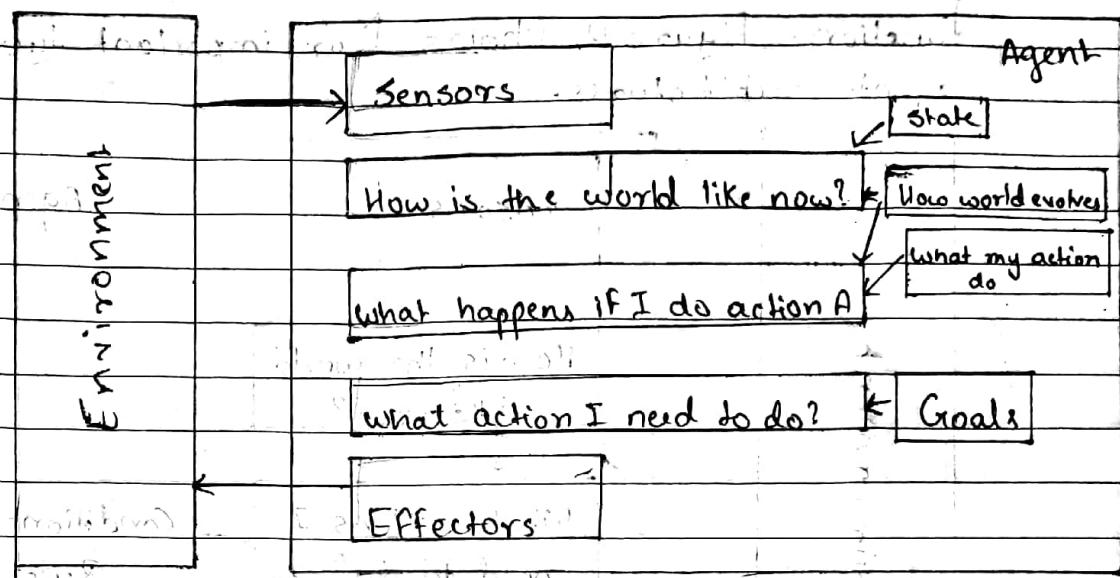 Agent
Sensors
State
How is the world like now?
How world evolves
what my action
do
what happens if I do action A
what action I need to do?
Goals
Effectors
Environment